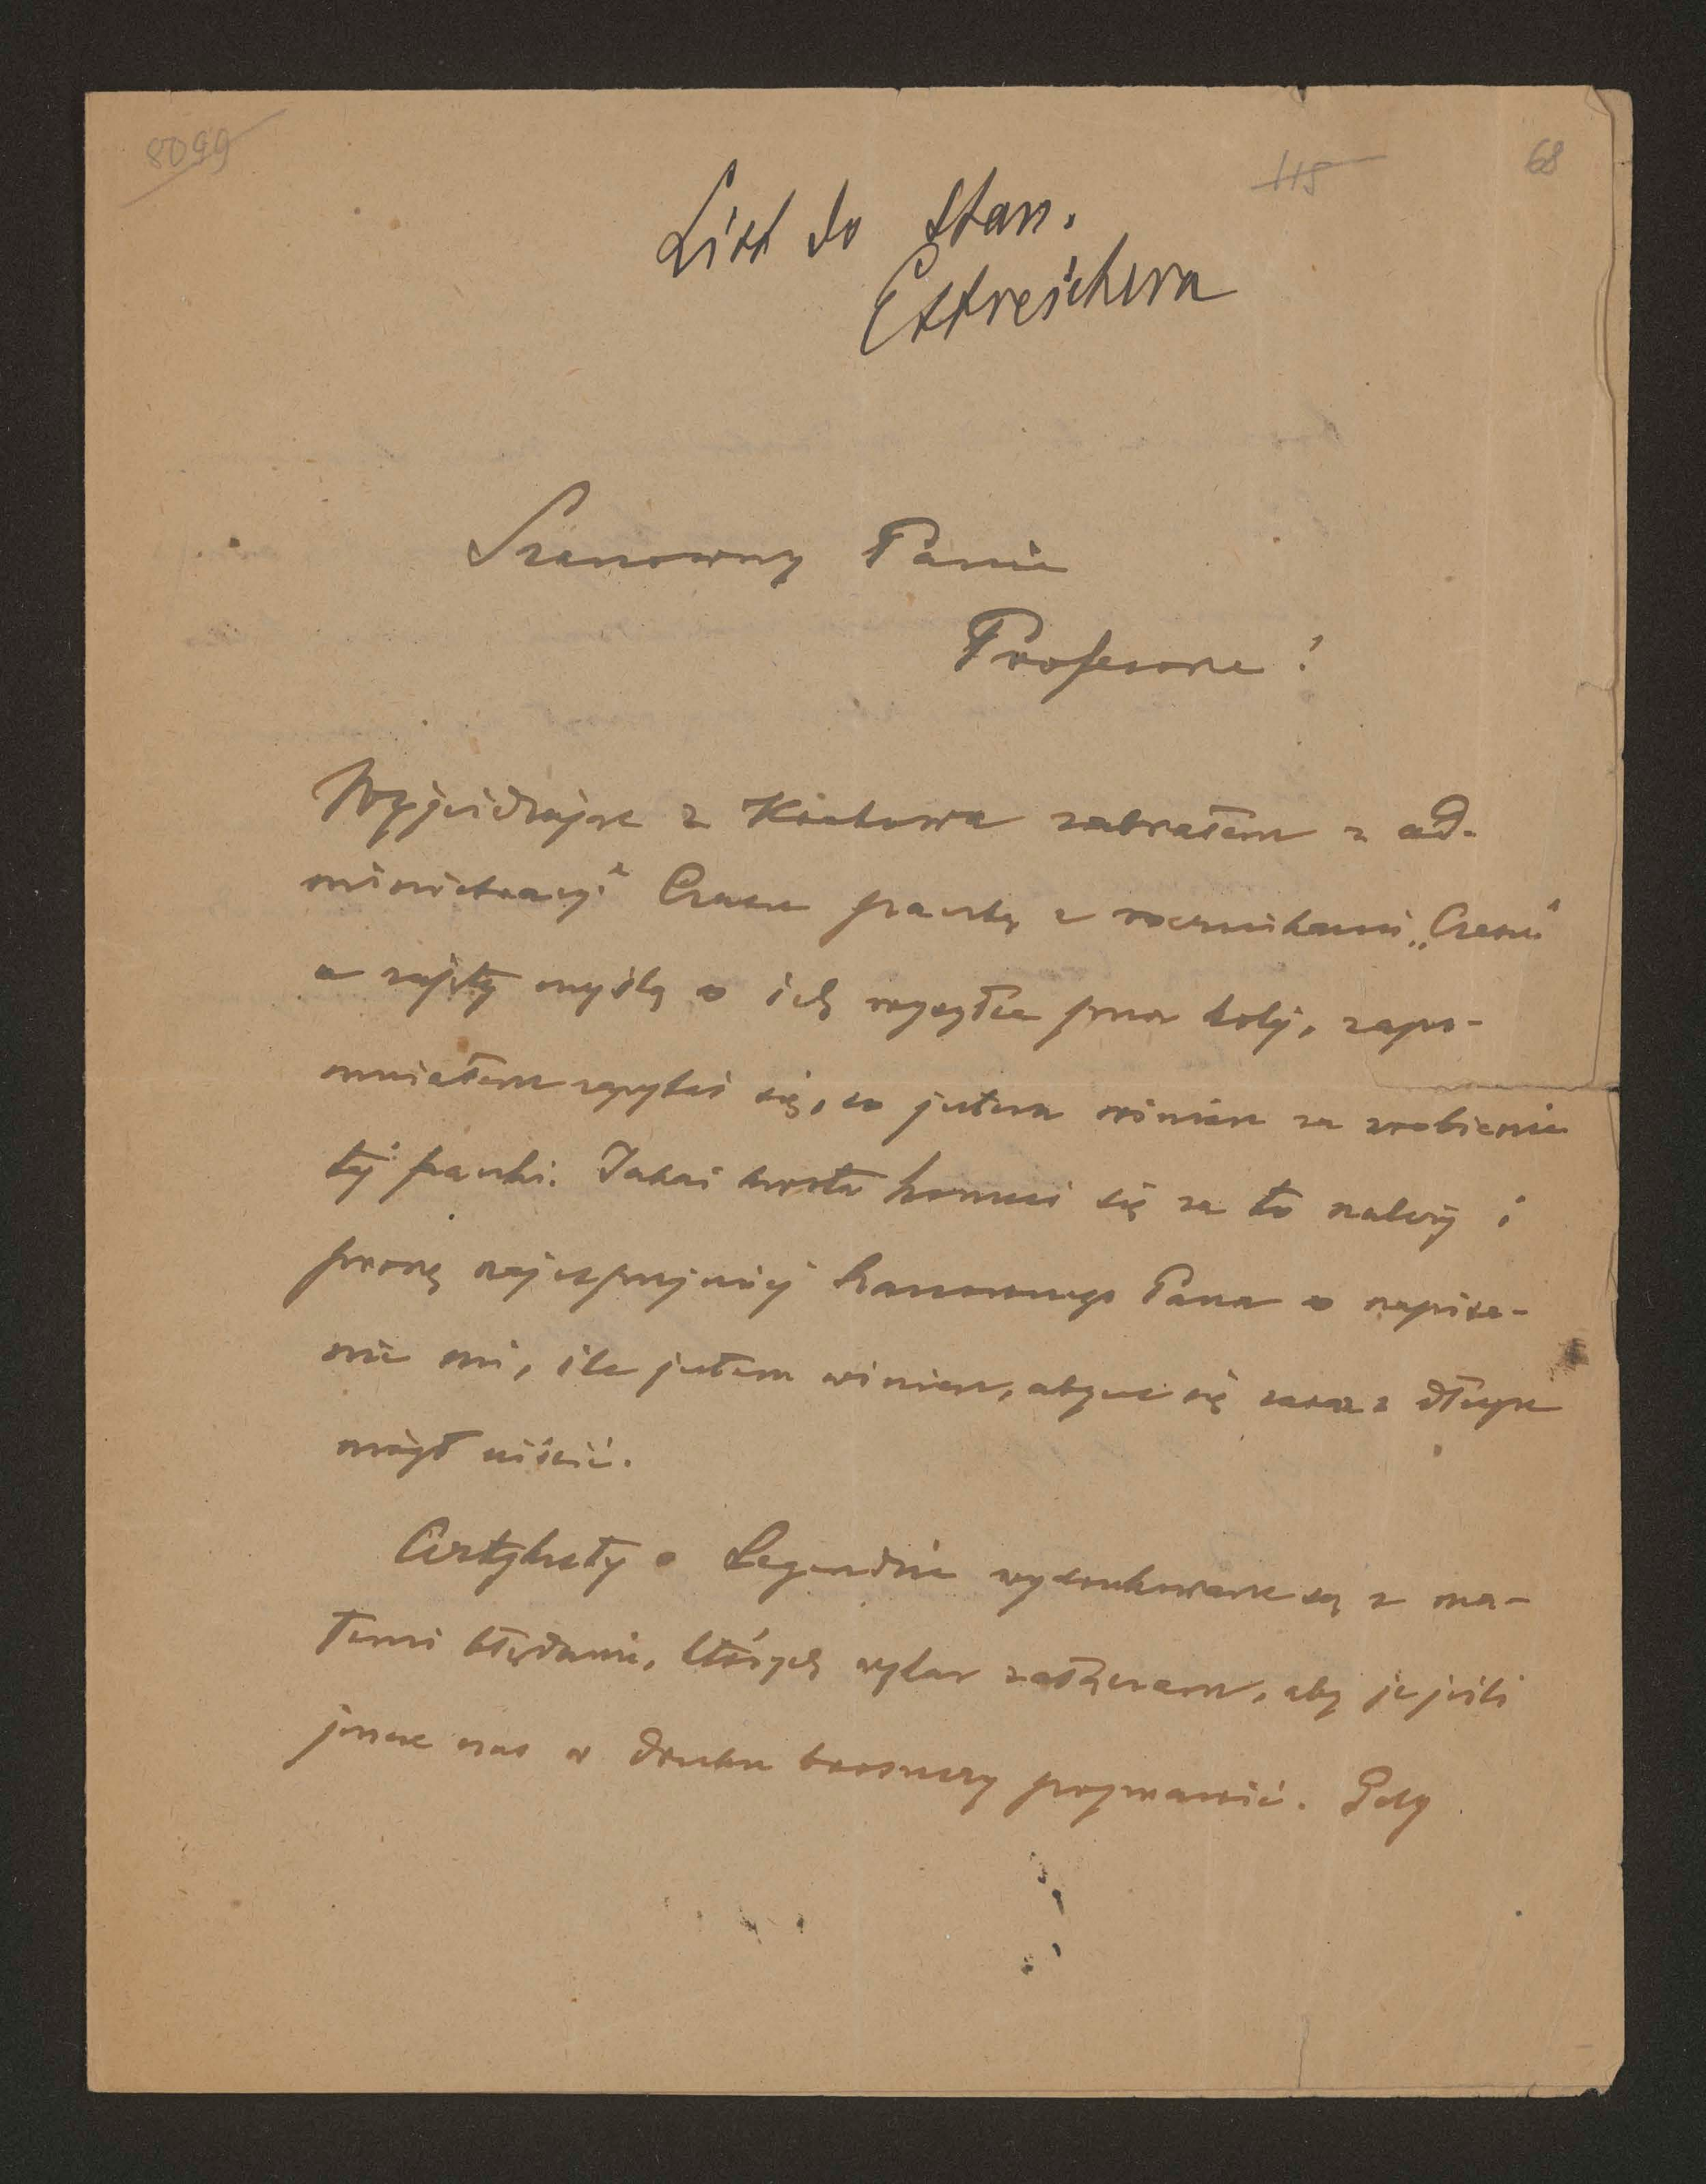 8099
115
68
List do Stan.
Estreichera
Szanowny Panie
Profesorze!
Wyjeżdżając z Krakowa zabrałem z ad-
ministracyi Czasu paczkę z rocznikami „Czasu"
a zajęty myślą o ich wysyłce przez kolej, zapo-
mniałem zapytać się, co jestem winien za zrobienie
tej paczki. Jakaś kwota komuś się za to należy i
proszę najuprzejmiej Szanownego Pana o napisa-
nie mi, ile jestem winien, abym się zaraz z długu
mógł uiścić.
Artykuły o Legendzie wydrukowane są z ma-
łemi błędami, których wykaz załączam, aby je jeśli
jeszcze czas w druku broszury poprawić. Gdy